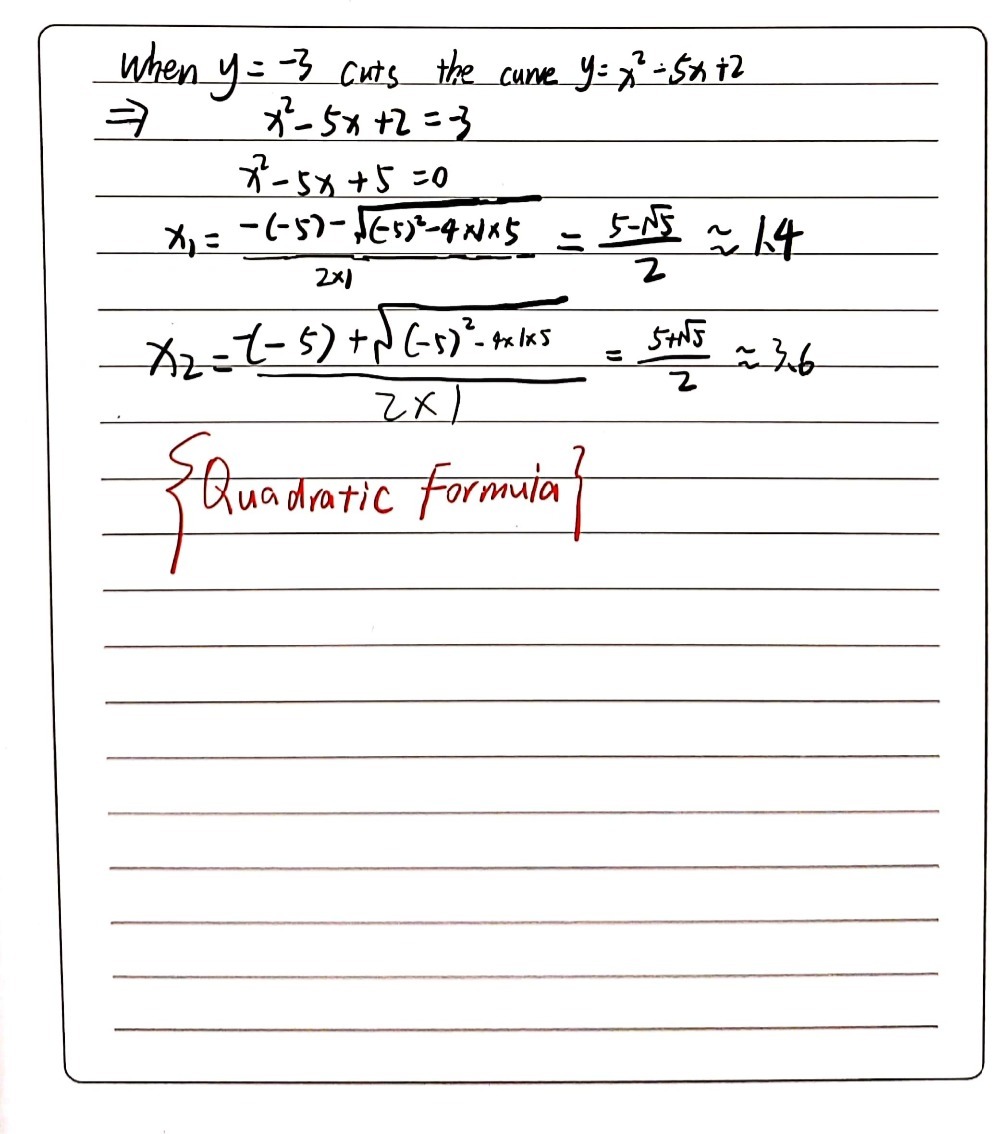 When y = -3 cuts the curve y = x² - 5x + 2
⇒ x² - 5x + 2 = -3
x² - 5x + 5 = 0
x₁ = (-(-5) - √((-5)² - 4×1×5)) / (2×1) = (5-√5)/2 ≈ 1.4
x₂ = (-(-5) + √((-5)² - 4×1×5)) / (2×1) = (5+√5)/2 ≈ 3.6
{Quadratic Formula}